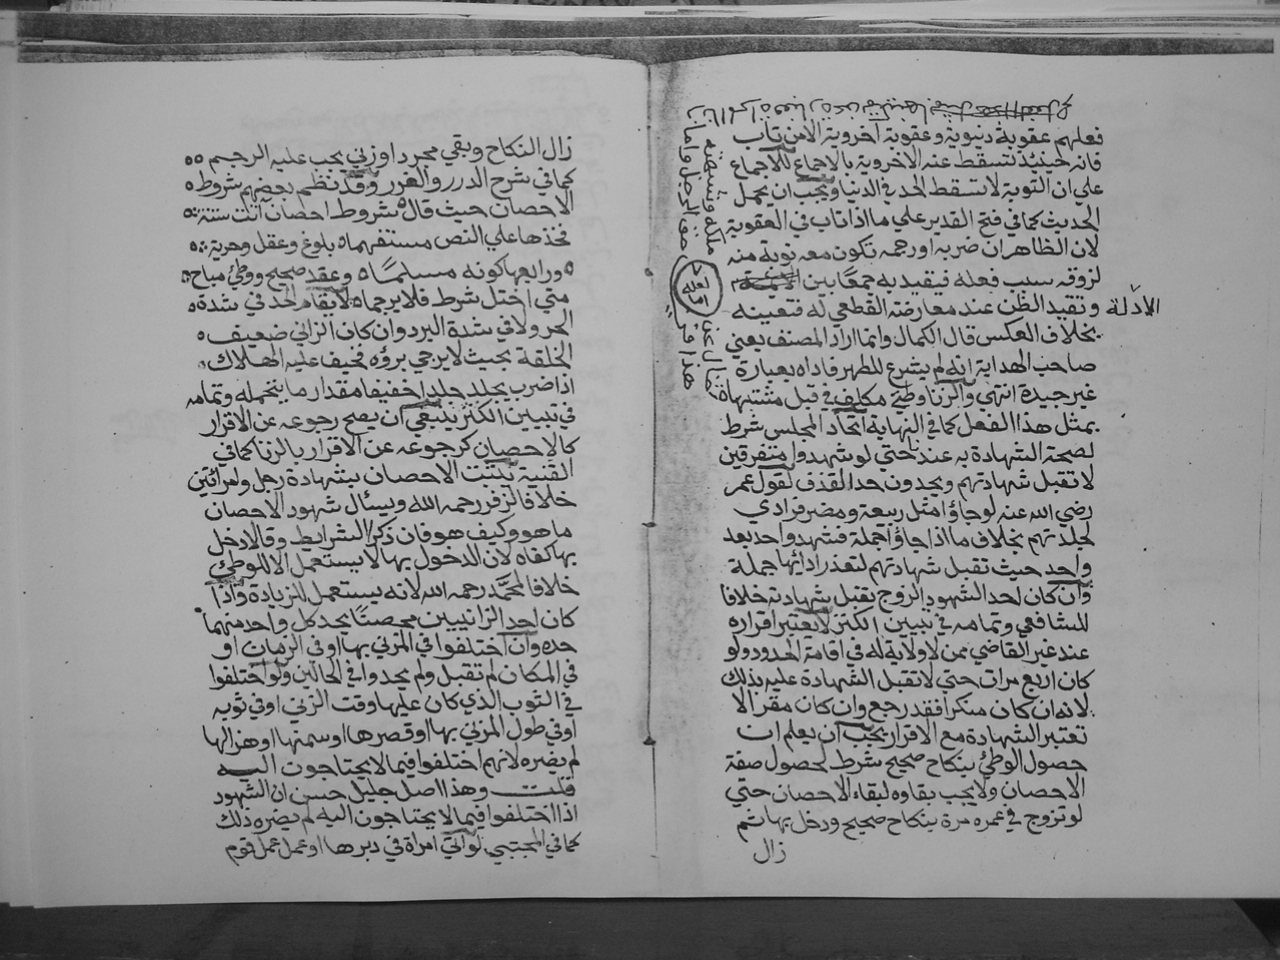 فعلهم عقوبة دنيوية وعقوبة اخروية الا من تاب
فانه حينيذ تسقط عنه الاخروية بالاجماع للاجماع
علي ان التوبة لا تسقط الحد في الدنيا ويجب ان يحمل
الحديث كما في فتح القدير علي ما اذا تاب في العقوبة
لان الظاهر ان ضربه او رجمه تكون معه توبة منه
لزوقه سبب فعله فيقيد به جمعا بين
الادلة وتقيد الظن عند معارضته القطعي له فتعينه
بخلاف العكس قال الكمال وانما اراد المصنف يعني
صاحب الهداية انه لم يشرع للطهر فاداه بعبارة
غير جيدة انتهي والزنا وطئ مكلف في قبل مشتهاة
بمثل هذا الفعل كما في النهاية اتحاد المجلس شرط
لصحة الشهادة به عندنا حتي لو شهدوا متفرقين
لا تقبل شهادتهم ويحدون حد القذف لقول عمر
رضي الله عنه لو جاؤا مثل ربيعة ومضر فرادي
لجلدتهم بخلاف ما اذا جاؤا جملة فشهد واحد بعد
واحد حيث تقبل شهادتهم لتعذر ادائها جملة
وان كان احد الشهود الزوج تقبل شهادته خلافا
للشافعي وتمامه في تبيين الكنز لا يعتبر اقراره
عند غير القاضي ممن لا ولاية له في اقامة الحدود ولو
كان اربع مرات حتي لا تقبل الشهادة عليه بذلك
لانه ان كان منكرا فقد رجع وان كان مقرا لا
تعتبر الشهادة مع الاقرار يجب ان يعلم ان
حصول الوطئ بنكاح صحيح شرط لحصول صفة
الاحصان ولا يجب بقاوه لبقاء الاحصان حتي
لو تزوج في عمره مرة بنكاح صحيح ودخل بها ثم
زال
زال النكاح وبقي مجردا وزني يجب عليه الرجم
كما في شرح الدرر والغرر وقد نظم بعضهم شروط
الاحصان حيث قال شروط احصان أتت ستة
فخذها علي النص مستفهما بلوغ وعقل وحرية
ورابعها كونه مسلما وعقد صحيح ووطئ مباح
متي اختل شرط فلا يرجما لا يقام الحد في شدة
الحر ولا في شدة البرد وان كان الزاني ضعيف
الخلقة بحيث لا يرجي برؤه فخيف عليه الهلاك
اذا ضرب يجلد جلدا خفيفا مقدار ما يتحمله وتمامه
في تبيين الكنز ينبغي ان يصح رجوعه عن الاقرار
كالاحصان كرجوعه عن الاقرار بالزنا كما في
القنية يثبت الاحصان بشهادة رجل وامراتين
خلافا لزفر رحمه الله ويسأل شهود الاحصان
ما هو وكيف هو فان ذكر الشرايط وقالا دخل
بها كفاه لان الدخول بها لا يستعمل الا للوطئ
خلافا لمحمد رحمه الله لانه يستعمل للزيادة واذا
كان احد الزانيين محصنا يحد كل واحد منهما
حده وان اختلفوا في المزني بها او في الزمان او
في المكان لم تقبل ولم يحدوا في الحالين ولو اختلفوا
في الثوب الذي كان عليها وقت الزني او في ثوبه
او في طول المزني بها او قصرها او سمنها او هزالها
لم يضره لانهم اختلفوا فيما لا يحتاجون اليه
قلت وهذا اصل جليل حسن ان الشهود
اذا اختلفوا فيما لا يحتاجون اليه لم يضره ذلك
كما في المجتبي لو اتي امراة في دبرها او عمل عمل قوم